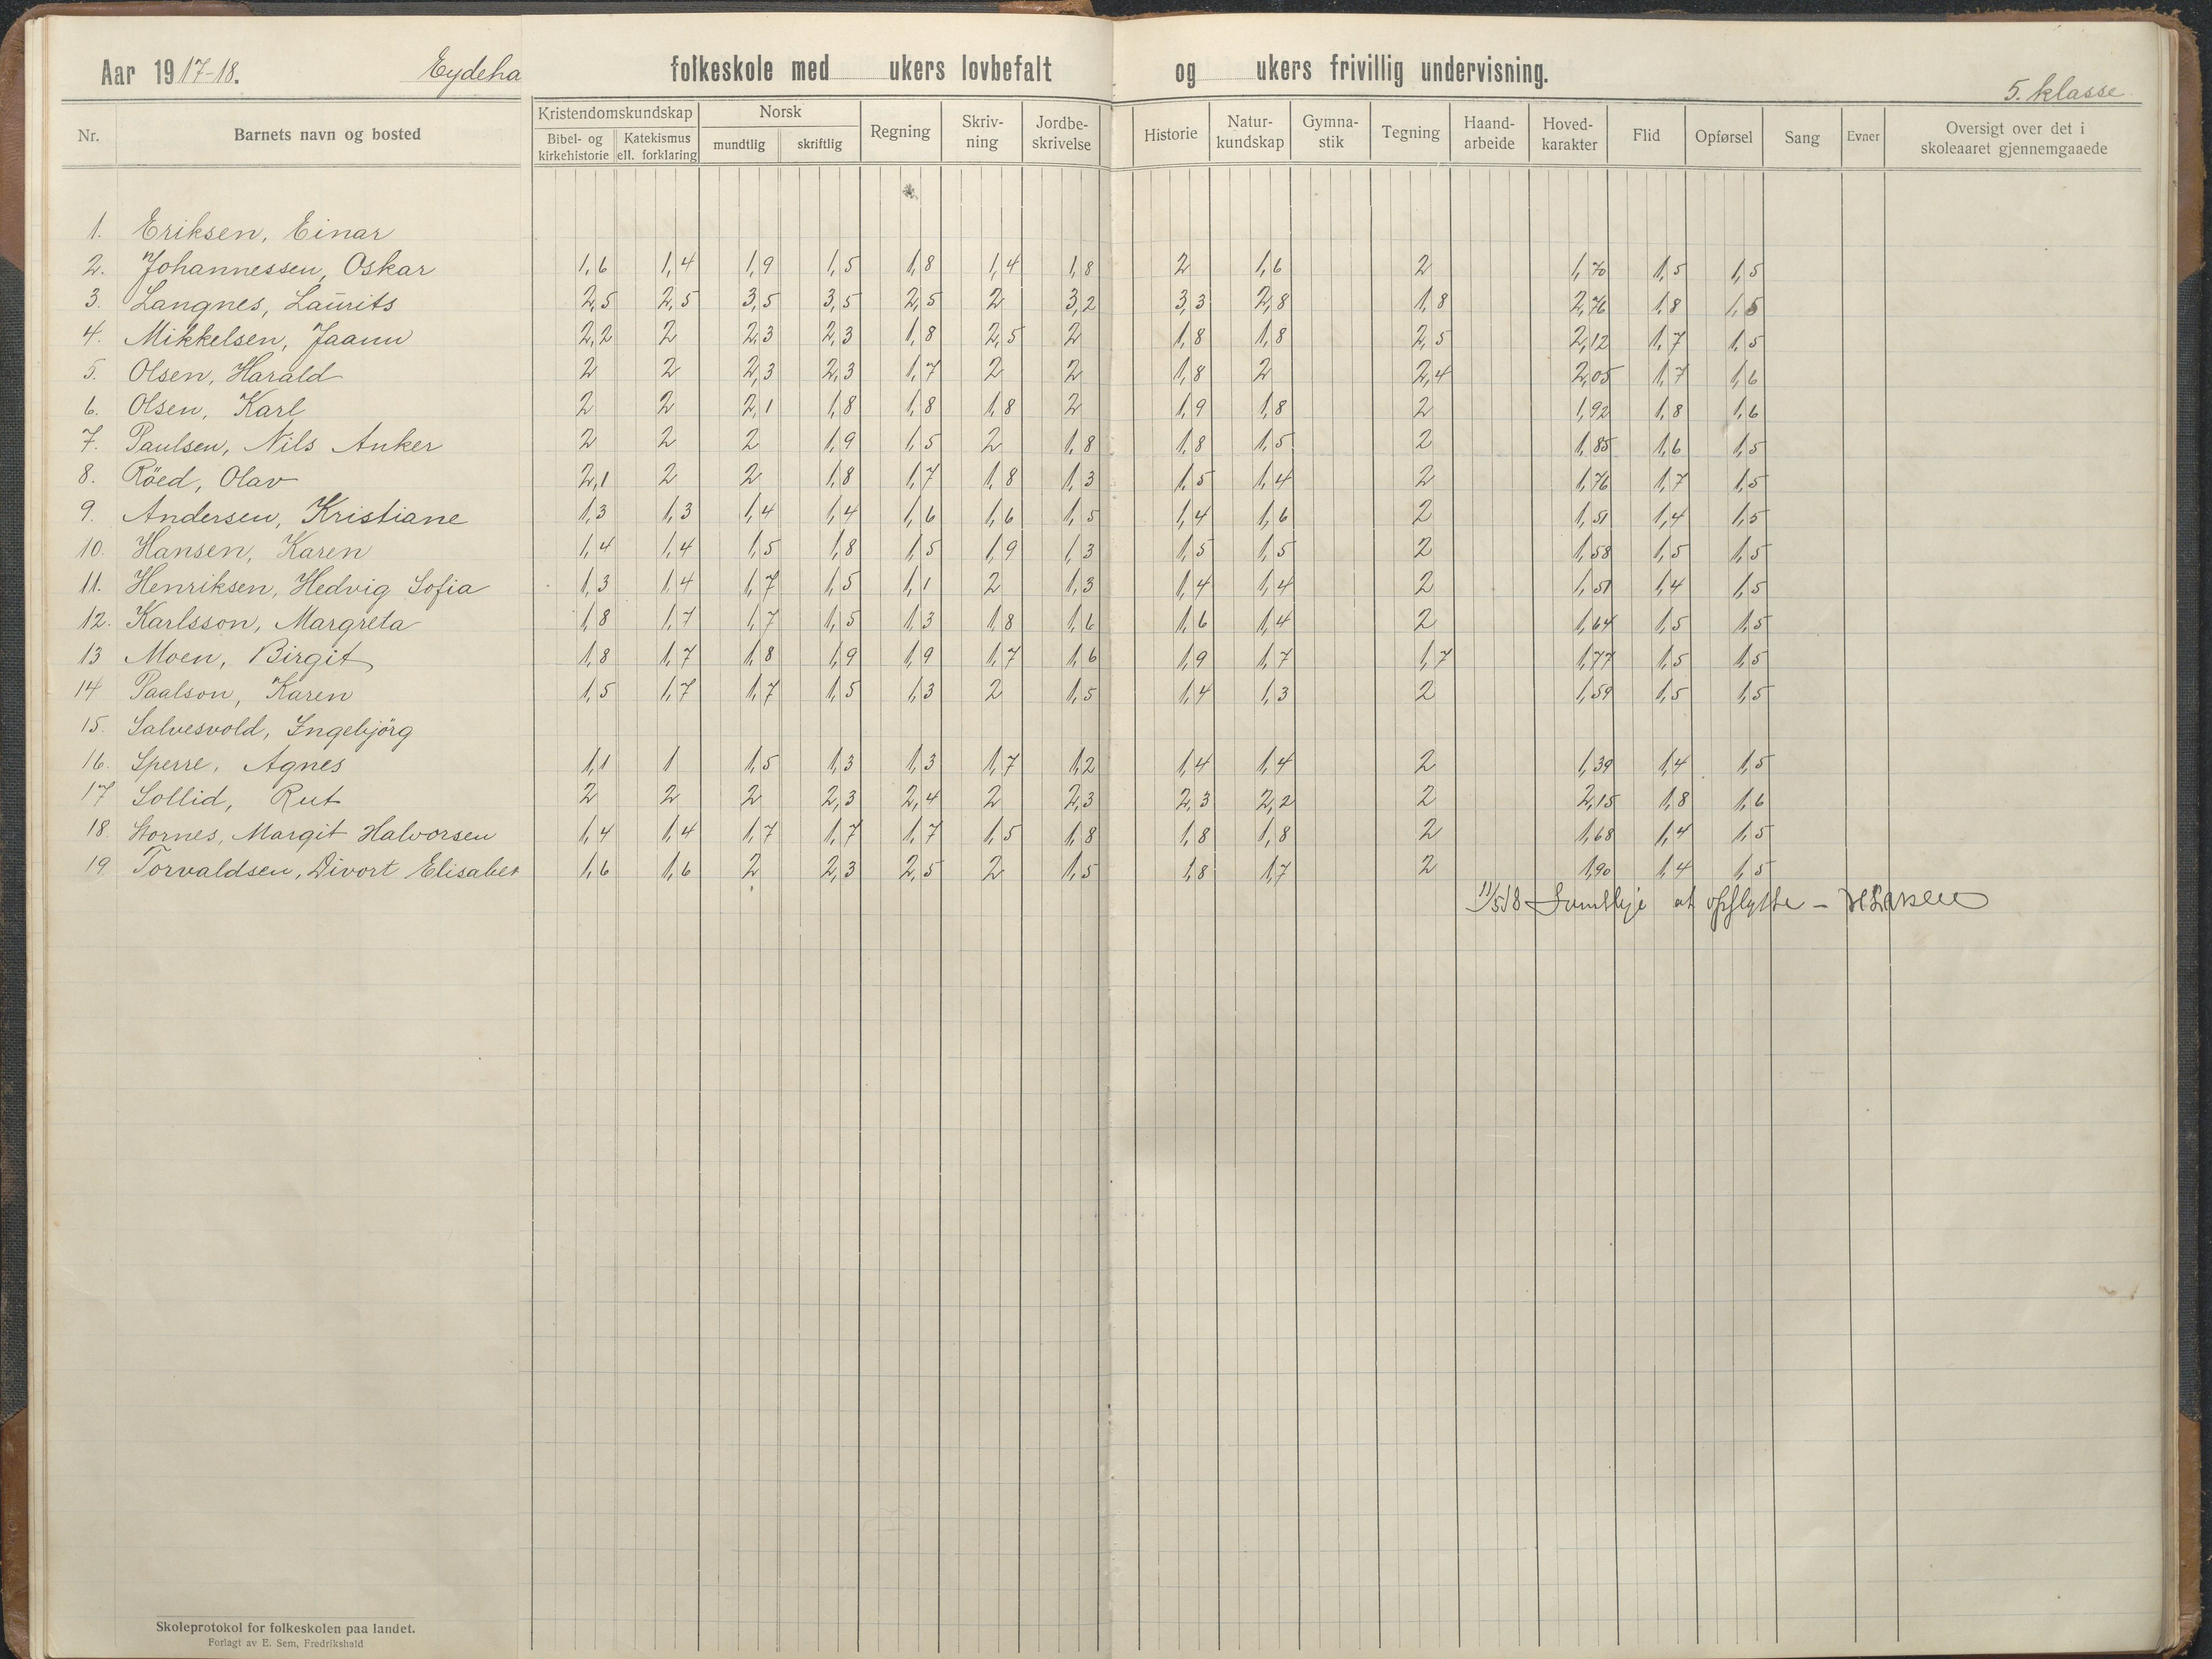 Aar 1917-18. Eydeha folkeskole med ukers lovbefalt og ukers frivillig undervisning.
5. klasse
Nr. Barnets navn og bosted Kristendomskundskap Bibel- og kirkehistorie Katekismus ell. forklaring Norsk mundtlig skriftlig Regning Skriv-ning Jordbe-skrivelse Historie Natur-kundskap Gymna-stik Tegning Haand-arbeide Hoved-karakter Flid Opførsel Sang Evner Oversigt over det i skoleaaret gjennemgaaede
1. Eriksen, Einar
2. Johannessen, Oskar 1,6 1,4 1,9 1,5 1,8 1,4 1,8 2 1,6 2 1,70 1,5 1,5
3. Langnes, Laurits 2,5 2,5 3,5 3,5 2,5 2 3,2 3,3 2,8 1,8 2,76 1,8 1,5
4. Mikkelsen, Jaann 2,2 2 2,3 2,3 1,8 2,5 2 1,8 1,8 2,5 2,12 1,7 1,5
5. Olsen, Harald 2 2 2,3 2,3 1,7 2 2 1,8 2 2,4 2,05 1,7 1,6
6. Olsen, Karl 2 2 2,1 1,8 1,8 1,8 2 1,9 1,8 2 1,92 1,8 1,6
7. Paulsen, Nils Anker 2 2 2 1,9 1,5 2 1,8 1,8 1,5 2 1,85 1,6 1,5
8. Röed, Olav 2,1 2 2 1,8 1,7 1,8 1,3 1,5 1,4 2 1,76 1,7 1,5
9. Andersen, Kristiane 1,3 1,3 1,4 1,4 1,6 1,6 1,5 1,4 1,6 2 1,51 1,4 1,5
10. Hansen, Karen 1,4 1,4 1,5 1,8 1,5 1,9 1,3 1,5 1,5 2 1,58 1,5 1,5
11. Henriksen, Hedvig Sofia 1,3 1,4 1,7 1,5 1,1 2 1,3 1,4 1,4 2 1,51 1,4 1,5
12. Karlsson, Margreta 1,8 1,7 1,7 1,5 1,3 1,8 1,6 1,6 1,4 2 1,64 1,5 1,5
13 Moen, Birgit 1,8 1,7 1,8 1,9 1,9 1,7 1,6 1,9 1,7 1,7 1,77 1,5 1,5
14 Paalson, Karen 1,5 1,7 1,7 1,5 1,3 2 1,5 1,4 1,3 2 1,59 1,5 1,5
15. Salvesvold, Ingebjörg
16. Sperre, Agnes 1,1 1 1,5 1,3 1,3 1,7 1,2 1,4 1,4 2 1,39 1,4 1,5
17 Sollid, Rut 2 2 2 2,3 2,4 2 2,3 2,3 2,2 2 2,15 1,8 1,6
18. Stornes, Margit Halvorsen 1,4 1,4 1,7 1,7 1,7 1,5 1,8 1,8 1,8 2 1,68 1,4 1,5
19 Torvaldsen, Divort Elisabet 1,6 1,6 2 2,3 2,5 2 1,5 1,8 1,7 2 1,90 1,4 1,5
11/5 18 at opflytte –
Skoleprotokol for folkeskolen paa landet.
Forlagt av E. Sem, Fredrikshald